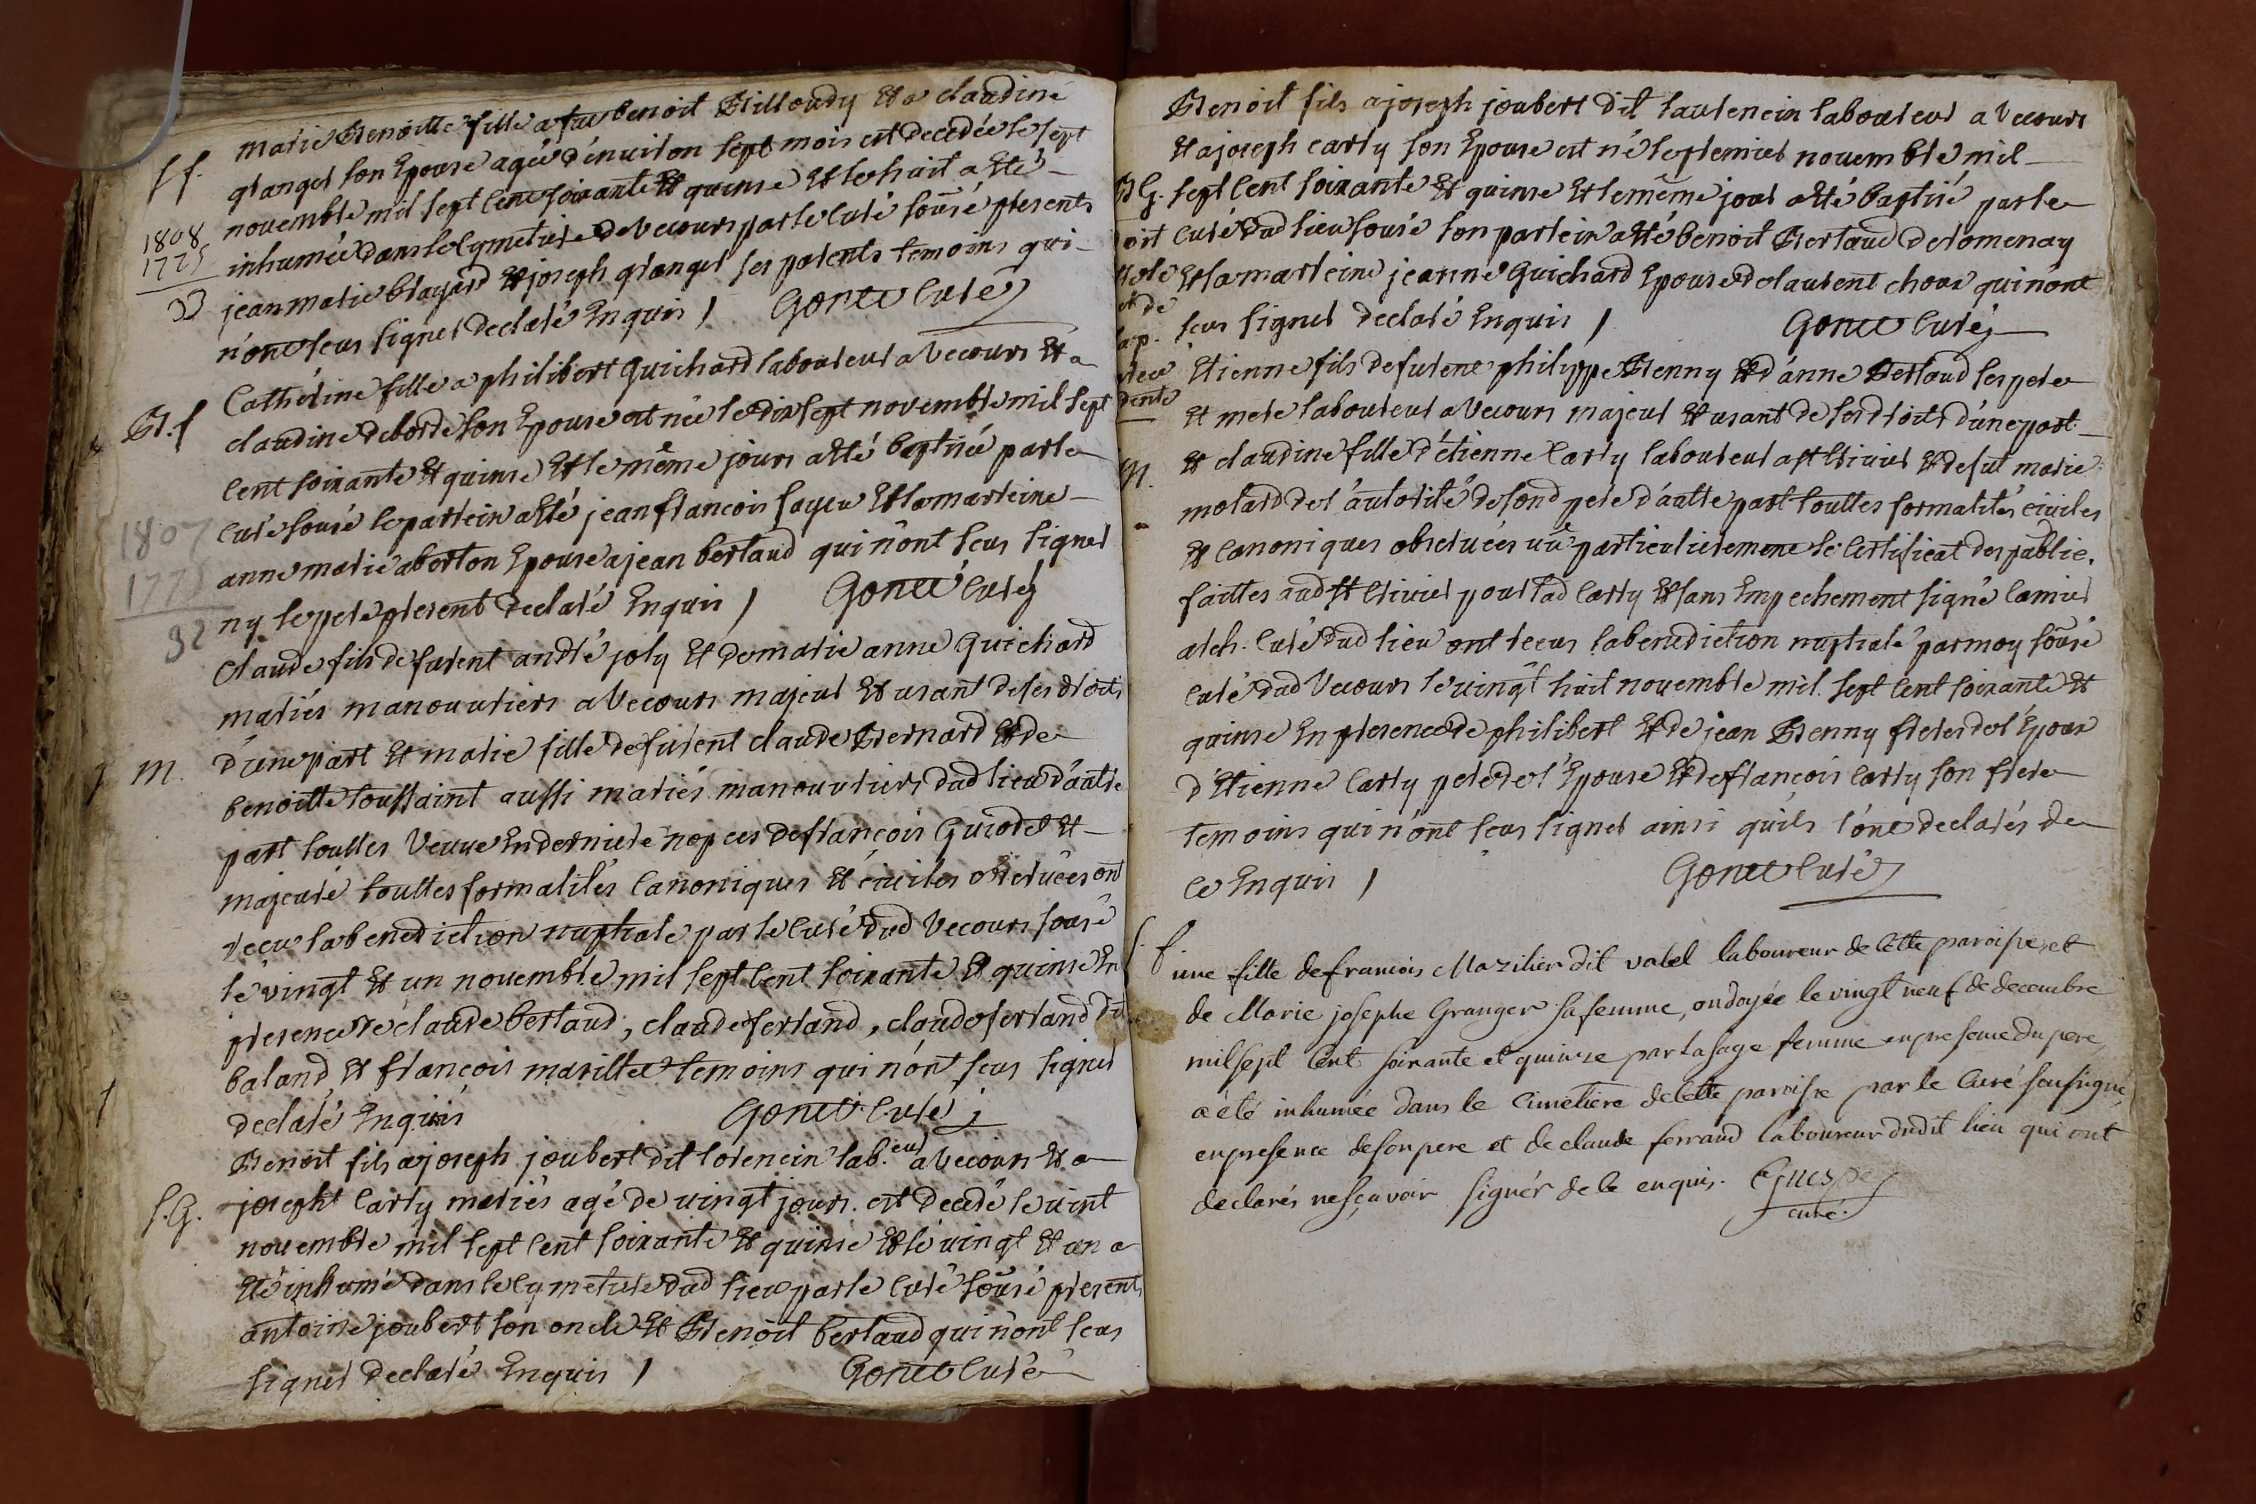 marie Benoitte fille a feu benoit Billoudy Et a claudine
S f. granger son Epouse agée d'environ sept mois est decedée le sept
novembre mil sept cent soixante Et quinse Et le huit a Eté
inhumée dans le cymetiere de Vecours par le curé sousé presents
1808
1775
33
jean marie blayard Et joseph granger ses parents temoins qui
n'ont seus signer declaré Enquis / Gonet Curé
Catherine fille a philibert Guichard laboureur a Vecours Et a
B. f claudine deborde son Epouse est née le dix sept novembre mil sept
cent soixante Et quinse Et le même jours a Eté baptisée par le
curé sousé le parrein a Eté jean francois fayeu Et la marreine
anne marie aberton Epouse a jean bertaud qui n'ont seus signer
1807
1775
32
ny le pere present declaré Enquis / Gonet Curé
Claude fils de furent andré joly Et de marie anne Guichard
mariés manouvriers a Vecours majeur Et usant de ses droits
m. d'une part Et marie fille de furent claude Bernard Et de
benoitte toussaint aussi mariés manouvriers dud lieu d'autre
part touttes Veuve En derniere nopces de francois Guiodet Et
majeure touttes formalités canoniques Et civiles observées ont
recu la benediction nuptiale par le curé dud Vecours sousé
le vingt Et un novembre mil sept cent soixante Et quinse En
presence de claude bertaud, claude ferland, claude ferland dit
baland Et francois marillier temoins qui n'ont seus signer
declaré Enquis Gonet Curé
Benoit fils a joseph joubert dit lorencin lab.eur a Vecours Et a
S. G. josepht Carty mariés agé de vingt jours. est decedé le vint
novembre mil sept cent soixante Et quinse Et le vingt Et un a
Eté inhumé dans le cymetiere dud lieu par le curé sousé presents
antoine joubert son oncle Et Benoit bertaud qui n'ont seus
signer declaré Enquis / Gonet Curé
Benoit fils a joseph joubert dit laurencin laboureur a Vecours
Et a joseph carty son Epouse est né le premier novembre mil
B G. sept cent soixante Et quinse Et le même jour a Eté baptisé par le
curé dud lieu sousé son parrein a Eté benoit Bertaud de romenay
Et la marreine jeanne Guichard Epouse de laurent choux qui n'ont
seus signer declaré Enquis / Gonet Curé
Etienne fils de furent philyppe Benny Et d'anne Bertaud ses pere
Et mere laboureur a Vecours majeur Et usant de ses droits d'une part
m. Et claudine fille d'étienne Carty laboureur a St trivier Et de fut marie
molard de l'autorité de sond pere d'autre part touttes formalités civiles
Et canoniques observées vû particulierement le certificat des public.
faittes aud St trivier pour lad Carty Et sans Empechement signé camier
arch. curé dud lieu ont recus la benediction nuptiale par moy sousé
curé dud Vecours le vingt huit novembre mil sept cent soixante Et
quinse En presence de philibert Et de jean Benny freres de l'Epoux
d'Etienne Carty pere de l'Epouse Et de francois Carty son frere
temoins qui n'ont seus signer ainsi qu'ils l'ont declarés de
ce Enquis / Gonet Curé
S. f. une fille de francois Mazilier dit vatel laboureur de cette paroisse, et
de Marie josephe Granger sa femme, ondoyée le vingt neuf de decembre
mil sept cent soixante et quinze par la sage femme en presence du pere,
a été inhumée dans le Cimetiere de cette paroisse par le Curé soussigné
en presence de son pere et de claude ferraud laboureur dudit lieu qui ont
declarés ne sçavoir signér de ce enquis. Guespe
curé.